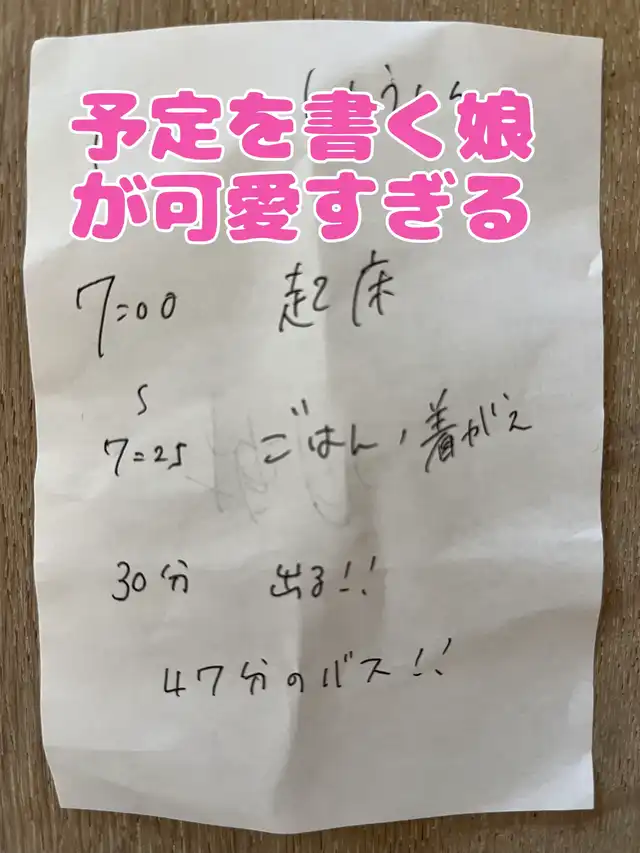 予定を書く娘
が可愛すぎる
7:00 起床
S
7:25 ごはん、着がえ
30分 出る!!
47分のバス!!